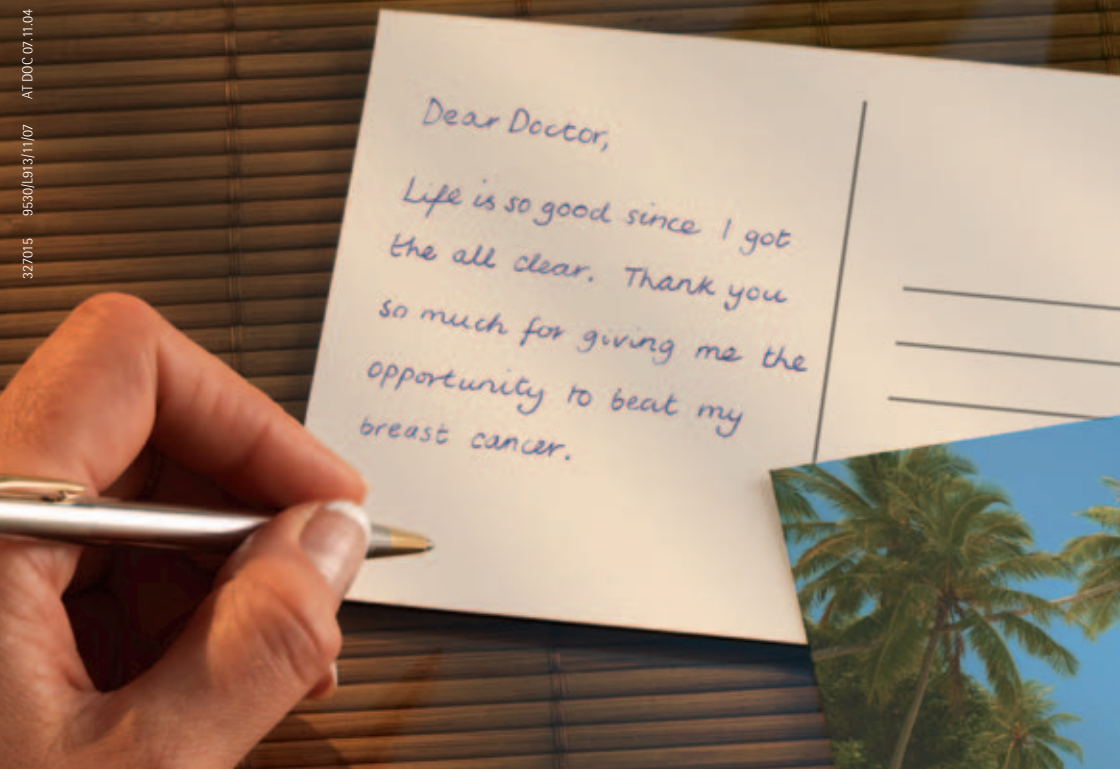 327015 9530/L913/11/07 AT DOC 07.11.04
Dear Doctor,
Life is so good since I got
the all clear. Thank you
so much for giving me the
opportunity to beat my
breast cancer.